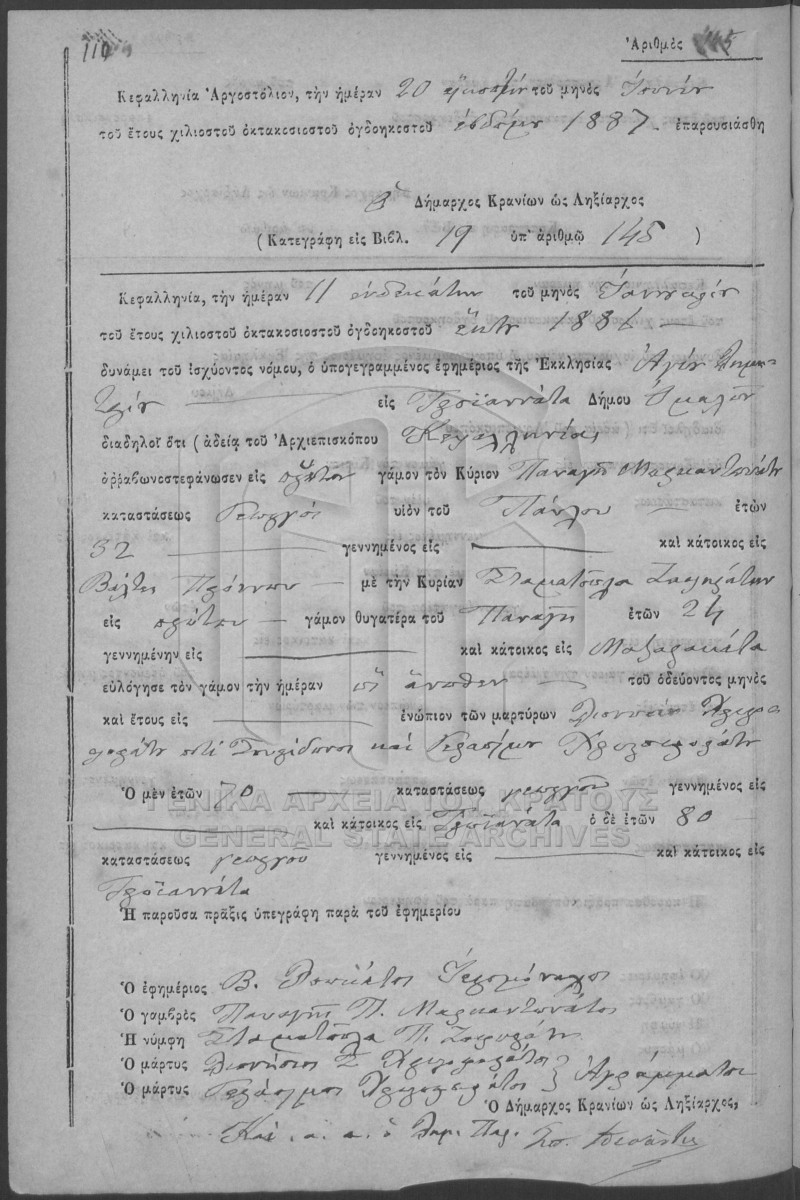 119
Ἀριθμὸς
Κεφαλληνία Ἀργοστόλιον, τὴν ἡμέραν 20 εἰκοστὴν τοῦ μηνὸς Ἰουνίου
τοῦ ἔτους χιλιοστοῦ ὀκτακοσιοστοῦ ὀγδοηκοστοῦ ἑβδόμου 1887. ἐπαρουσιάσθη
Ὁ Δήμαρχος Κρανίων ὡς Ληξίαρχος
(Κατεγράφη εἰς Βιβλ. 19 ὑπ' ἀριθμῷ 145 )
Κεφαλληνία, τὴν ἡμέραν 11 ἑνδεκάτην τοῦ μηνὸς Ἰαννουαρίου
τοῦ ἔτους χιλιοστοῦ ὀκτακοσιοστοῦ ὀγδοηκοστοῦ ἕκτου 1886 —
δυνάμει τοῦ ἰσχύοντος νόμου, ὁ ὑπογεγραμμένος ἐφημέριος τῆς Ἐκκλησίας Ἁγίου Δημη-
τρίου εἰς Τρωϊαννάτα Δήμου Ὁμαλῶν
διαδηλοῖ ὅτι (ἀδείᾳ τοῦ Ἀρχιεπισκόπου Κεφαλληνίας
ἀρραβωνοστεφάνωσεν εἰς πρῶτον γάμον τὸν Κύριον Παναγῆ Μαρκαντωνάτον
καταστάσεως Γεωργὸς υἱὸν τοῦ Παύλου — ἐτῶν
32 — γεννημένος εἰς — καὶ κάτοικος εἰς
Βάλτες Πρόννων — μὲ τὴν Κυρίαν Σταματούλα
εἰς πρῶτον — γάμον θυγατέρα τοῦ Παναγῆ ἐτῶν 24
γεννημένην εἰς — καὶ κάτοικος εἰς Μαζαρακάτα
εὐλόγησε τὸν γάμον τὴν ἡμέραν ὡς ἄνωθεν — τοῦ ὁδεύοντος μηνὸς
καὶ ἔτους εἰς — ἐνώπιον τῶν μαρτύρων Διονυσίου
ποτὲ Σπυρίδωνος καὶ Γερασίμου
Ὁ μὲν ἐτῶν 70 — καταστάσεως γεωργοῦ — γεννημένος εἰς
— καὶ κάτοικος εἰς Τρωϊανάτα ὁ δὲ ἐτῶν 80 —
καταστάσεως γεωργου γεννημένος εἰς — καὶ κάτοικος εἰς
Τρωϊαννάτα
Ἡ παροῦσα πρᾶξις ὑπεγράφη παρὰ τοῦ ἐφημερίου
ΓΕΝΙΚΑ ΑΡΧΕΙΑ ΤΟΥ ΚΡΑΤΟΥΣ
GENERAL STATE ARCHIVES
Ὁ ἐφημέριος Β. Ἱερομόναχος
Ὁ γαμβρὸς Παναγῆς Π. Μαρκαντωνάτος
Ἡ νύμφη Σταματούλα Π.
Ὁ μάρτυς Διονήσιος Σ.
Ὁ μάρτυς Γεράσιμος } Ἀγράμματοι
Ὁ Δήμαρχος Κρανίων ὡς Ληξίαρχος,